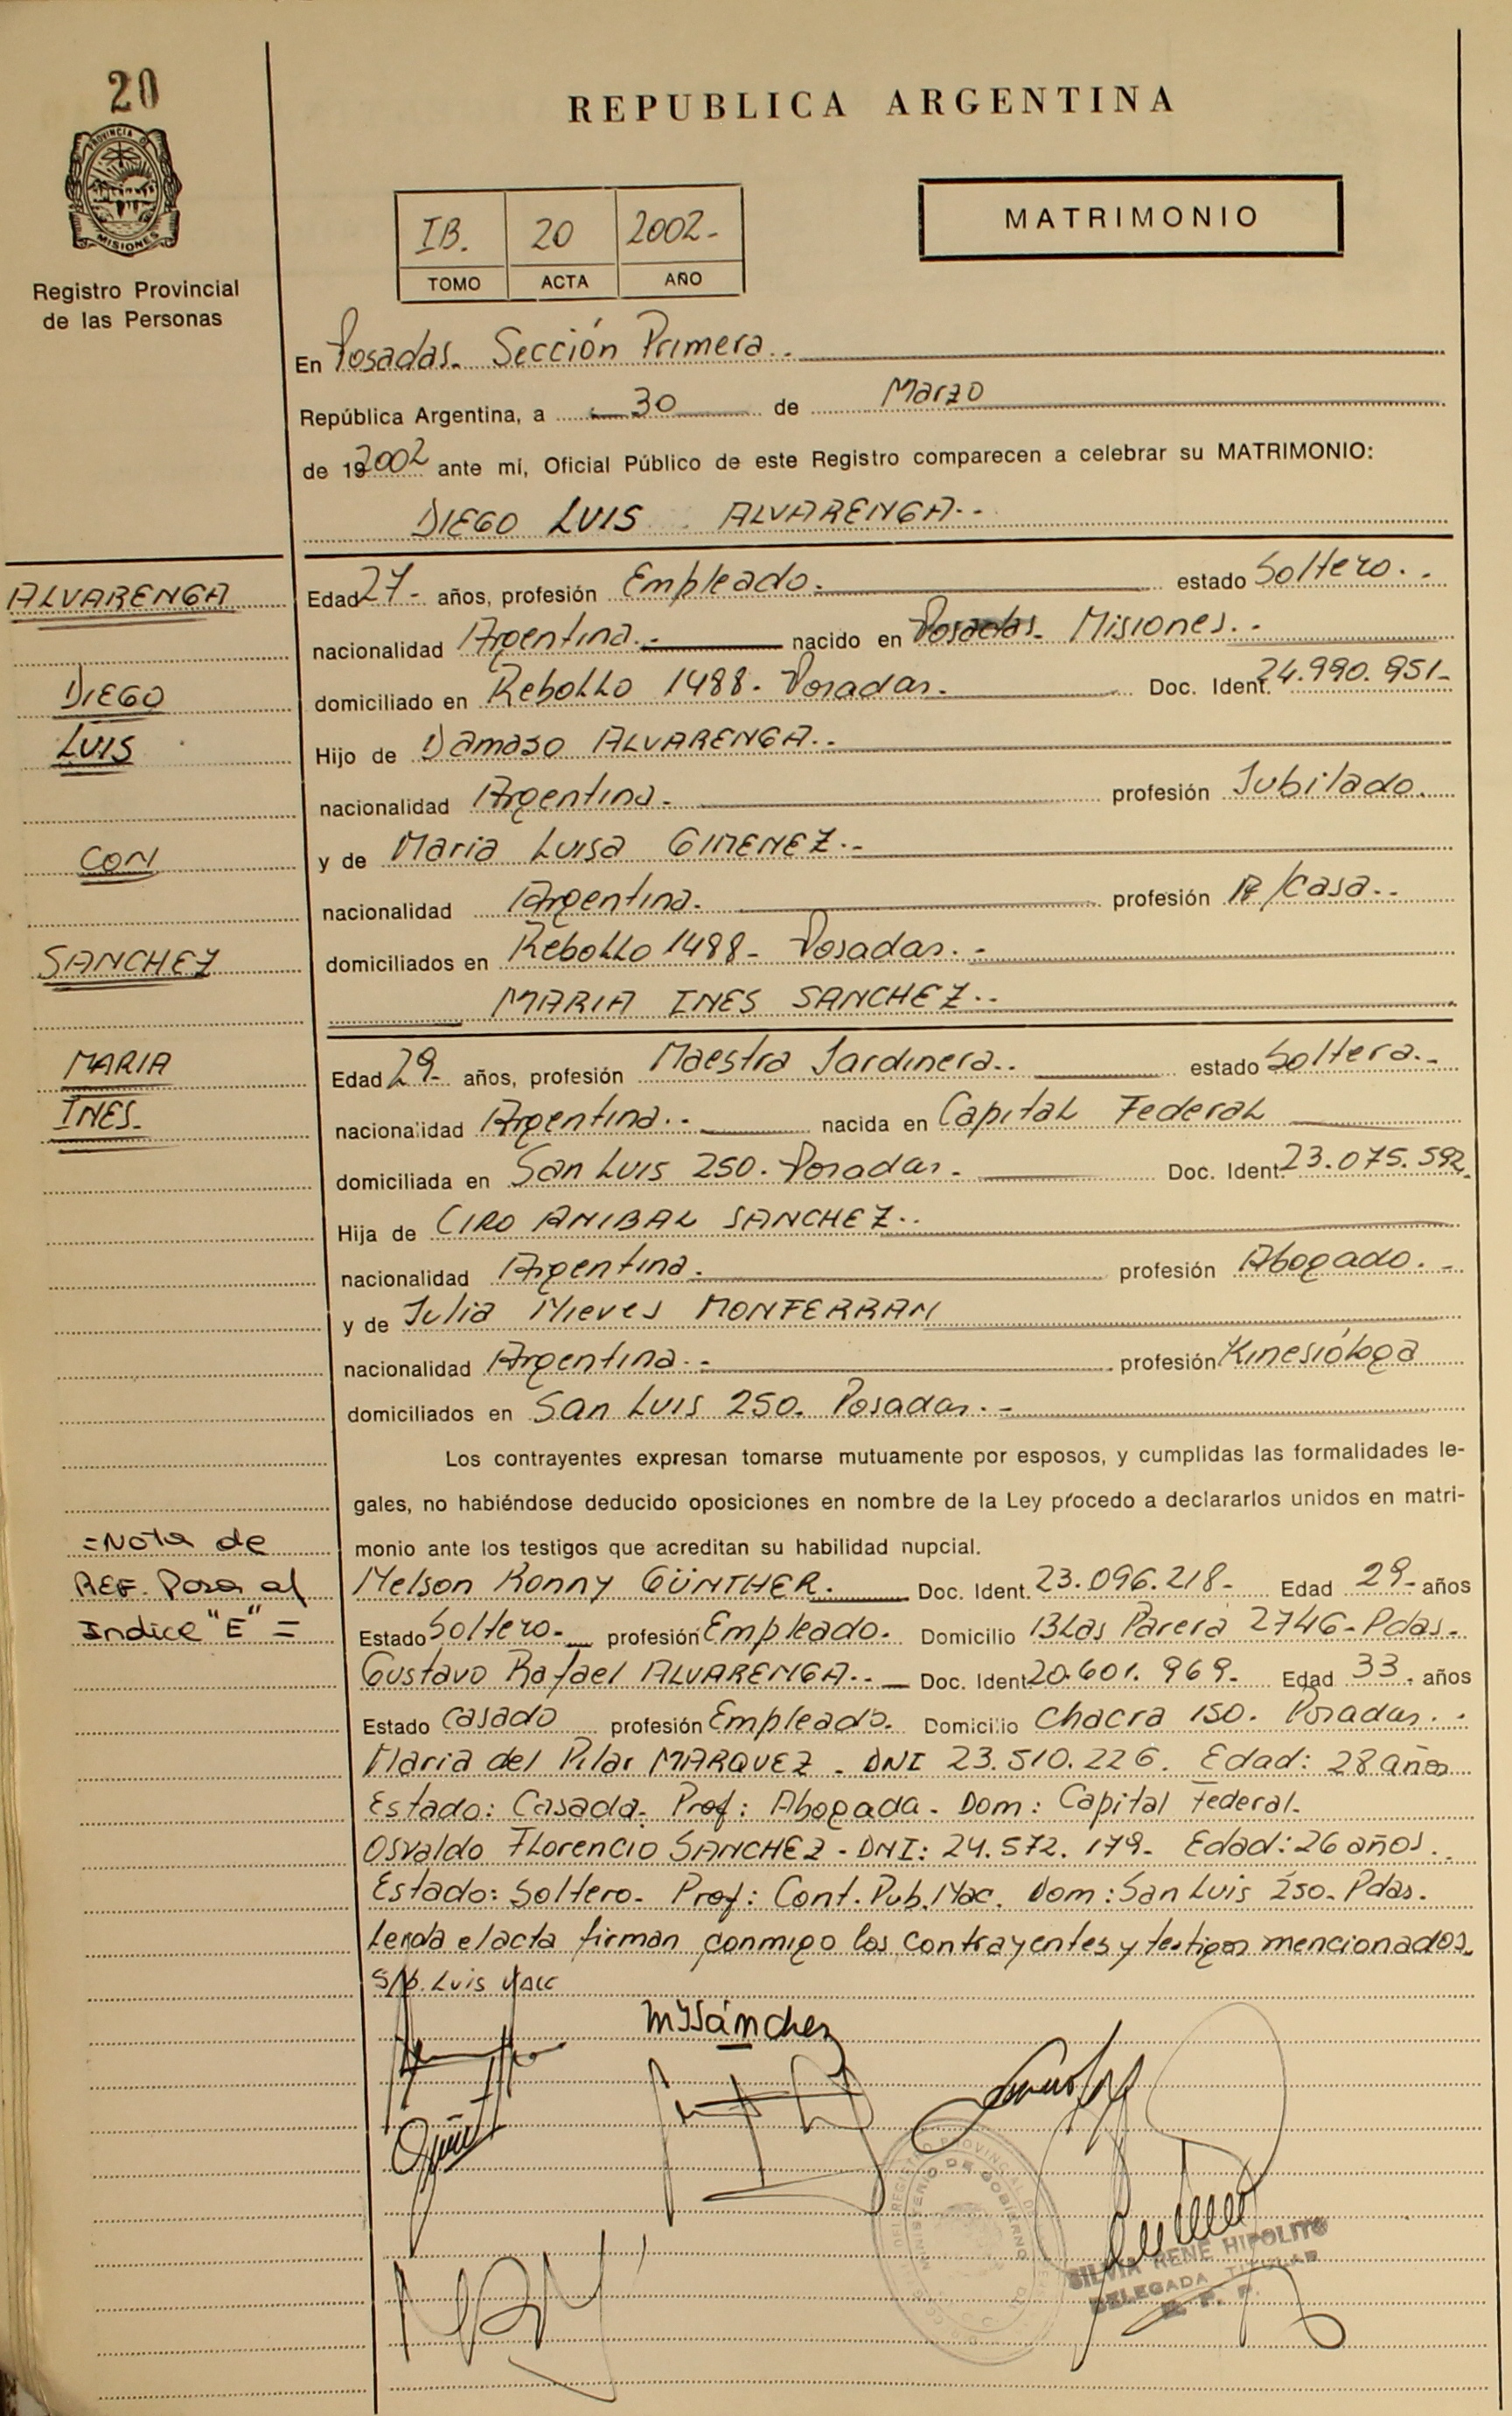 20
PROVINCIA D
MISIONES
Registro Provincial
de las Personas
REPUBLICA ARGENTINA
IB. 20 2002-
TOMO ACTA AÑO
MATRIMONIO
En Posadas- Sección Primera..
República Argentina, a 30 de Marzo
de 192002 ante mi, Oficial Público de este Registro comparecen a celebrar su MATRIMONIO:
DIEGO LUIS ALVARENGA.-
ALVARENGA
DIEGO
LUIS
CON
SANCHEZ
MARIA
INES-
Edad 27- años, profesión Empleado. estado Soltero..
nacionalidad Argentina.- nacido en Posadas- Misiones.-
domiciliado en Rebollo 1488- Posadas. Doc. Ident. 24.990.951-
Hijo de Damaso ALVARENGA.-
nacionalidad Argentina. profesión Jubilado.
y de Maria Luisa GIMENEZ.-
nacionalidad Argentina. profesión A/casa..
domiciliados en Rebollo 1488- Posadas.-
MARIA INES SANCHEZ..
Edad 29- años, profesión Maestra Jardinera.. estado Soltera.-
nacionalidad Argentina.. nacida en Capital Federal
domiciliada en San Luis 250. Posadas.- Doc. Ident. 23.075.592
Hija de CIRO ANIBAL SANCHEZ..
nacionalidad Argentina. profesión Abogado.-
y de Julia Nieves MONFERRAN
nacionalidad Argentina.- profesión Kinesióloga
domiciliados en San Luis 250. Posadas.-
Los contrayentes expresan tomarse mutuamente por esposos, y cumplidas las formalidades le-
gales, no habiéndose deducido oposiciones en nombre de la Ley procedo a declararlos unidos en matri-
monio ante los testigos que acreditan su habilidad nupcial.
=Nota de
REF. Pasa al
Indice "E" =
Nelson Ronny GÜNTHER. Doc. Ident. 23.096.218- Edad 29- años
Estado Soltero.- profesión Empleado. Domicilio Blas Parera 2746- Pdas-
Gustavo Rafael ALVARENGA.- Doc. Ident. 20.601.969- Edad 33. años
Estado casado profesión Empleado. Domicilio Chacra 150. Posadas..
Maria del Pilar MARQUEZ - DNI 23.510.226. Edad: 28 años
Estado: Casada. Prof: Abogada- Dom: Capital Federal-
Osvaldo Florencio SANCHEZ - DNI: 24.572.179- Edad: 26 años.
Estado: Soltero- Prof: Cont. Pub. Nac. Dom: San Luis 250- Pdas.
Leida el acta firman conmigo los contrayentes y testigos mencionados.
S/b. Luis vale
MISánchez
SILVIA RENE HIPOLITO
DELEGADA TITULAR
R. P. P.